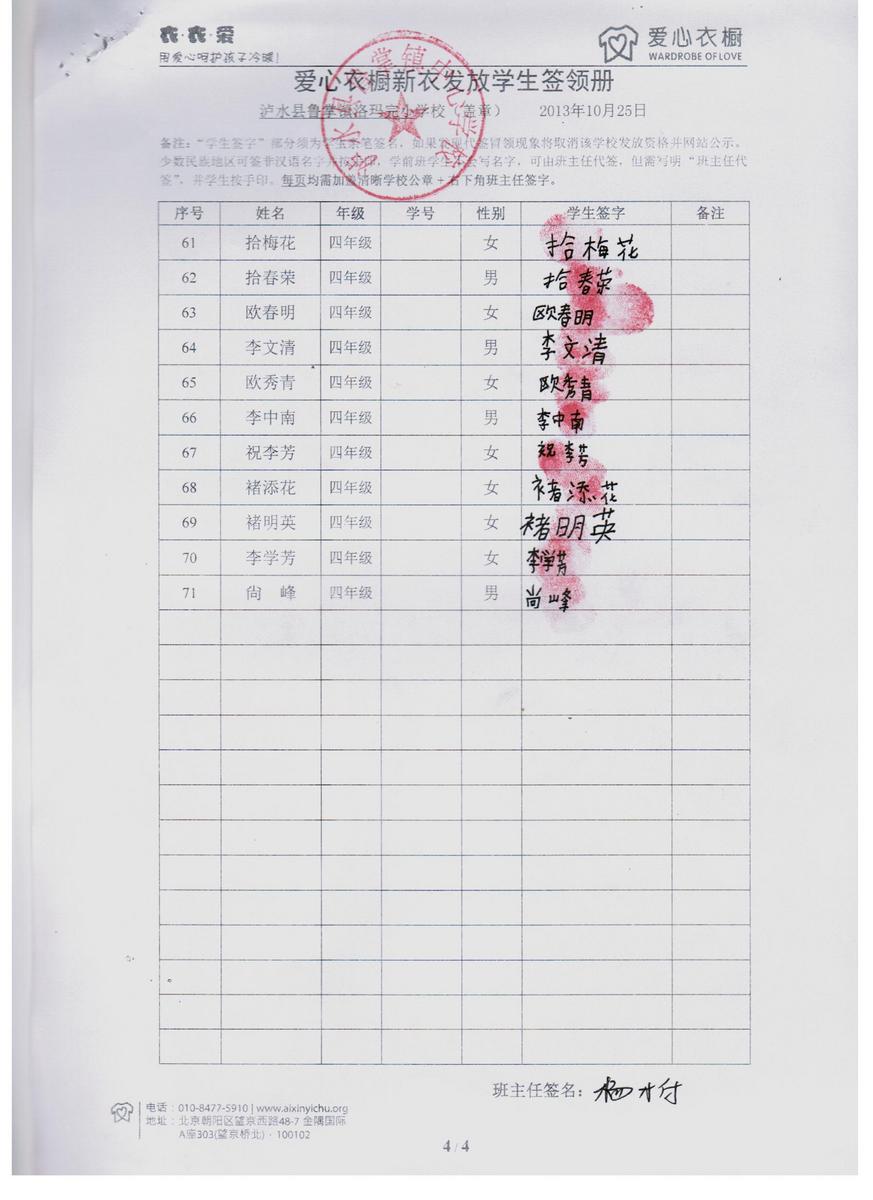 衣·衣·爱
用爱心呵护孩子冷暖!
爱心衣橱
WARDROBE OF LOVE
爱心衣橱新衣发放学生签领册
泸水县鲁掌镇洛玛完小学校（盖章） 2013年10月25日
备注："学生签字"部分须为学生亲笔签名，如果发现代签冒领现象将取消该学校发放资格并网站公示。
少数民族地区可签非汉语名字并按手印，学前班学生不会写名字，可由班主任代签，但需写明"班主任代
签"，并学生按手印。每页均需加盖清晰学校公章+右下角班主任签字。
序号 姓名 年级 学号 性别 学生签字 备注
61 拾梅花 四年级 女 拾梅花
62 拾春荣 四年级 男 拾春荣
63 欧春明 四年级 女 欧春明
64 李文清 四年级 男 李文清
65 欧秀青 四年级 女 欧秀青
66 李中南 四年级 男 李中南
67 祝李芳 四年级 女 祝李芳
68 褚添花 四年级 女 褚添花
69 褚明英 四年级 女 褚明英
70 李学芳 四年级 女 李学芳
71 尚 峰 四年级 男 尚峰
班主任签名：
电话：010-8477-5910 | www.aixinyichu.org
地址：北京朝阳区望京西路48-7 金隅国际
A座303(望京桥北)·100102
4 / 4